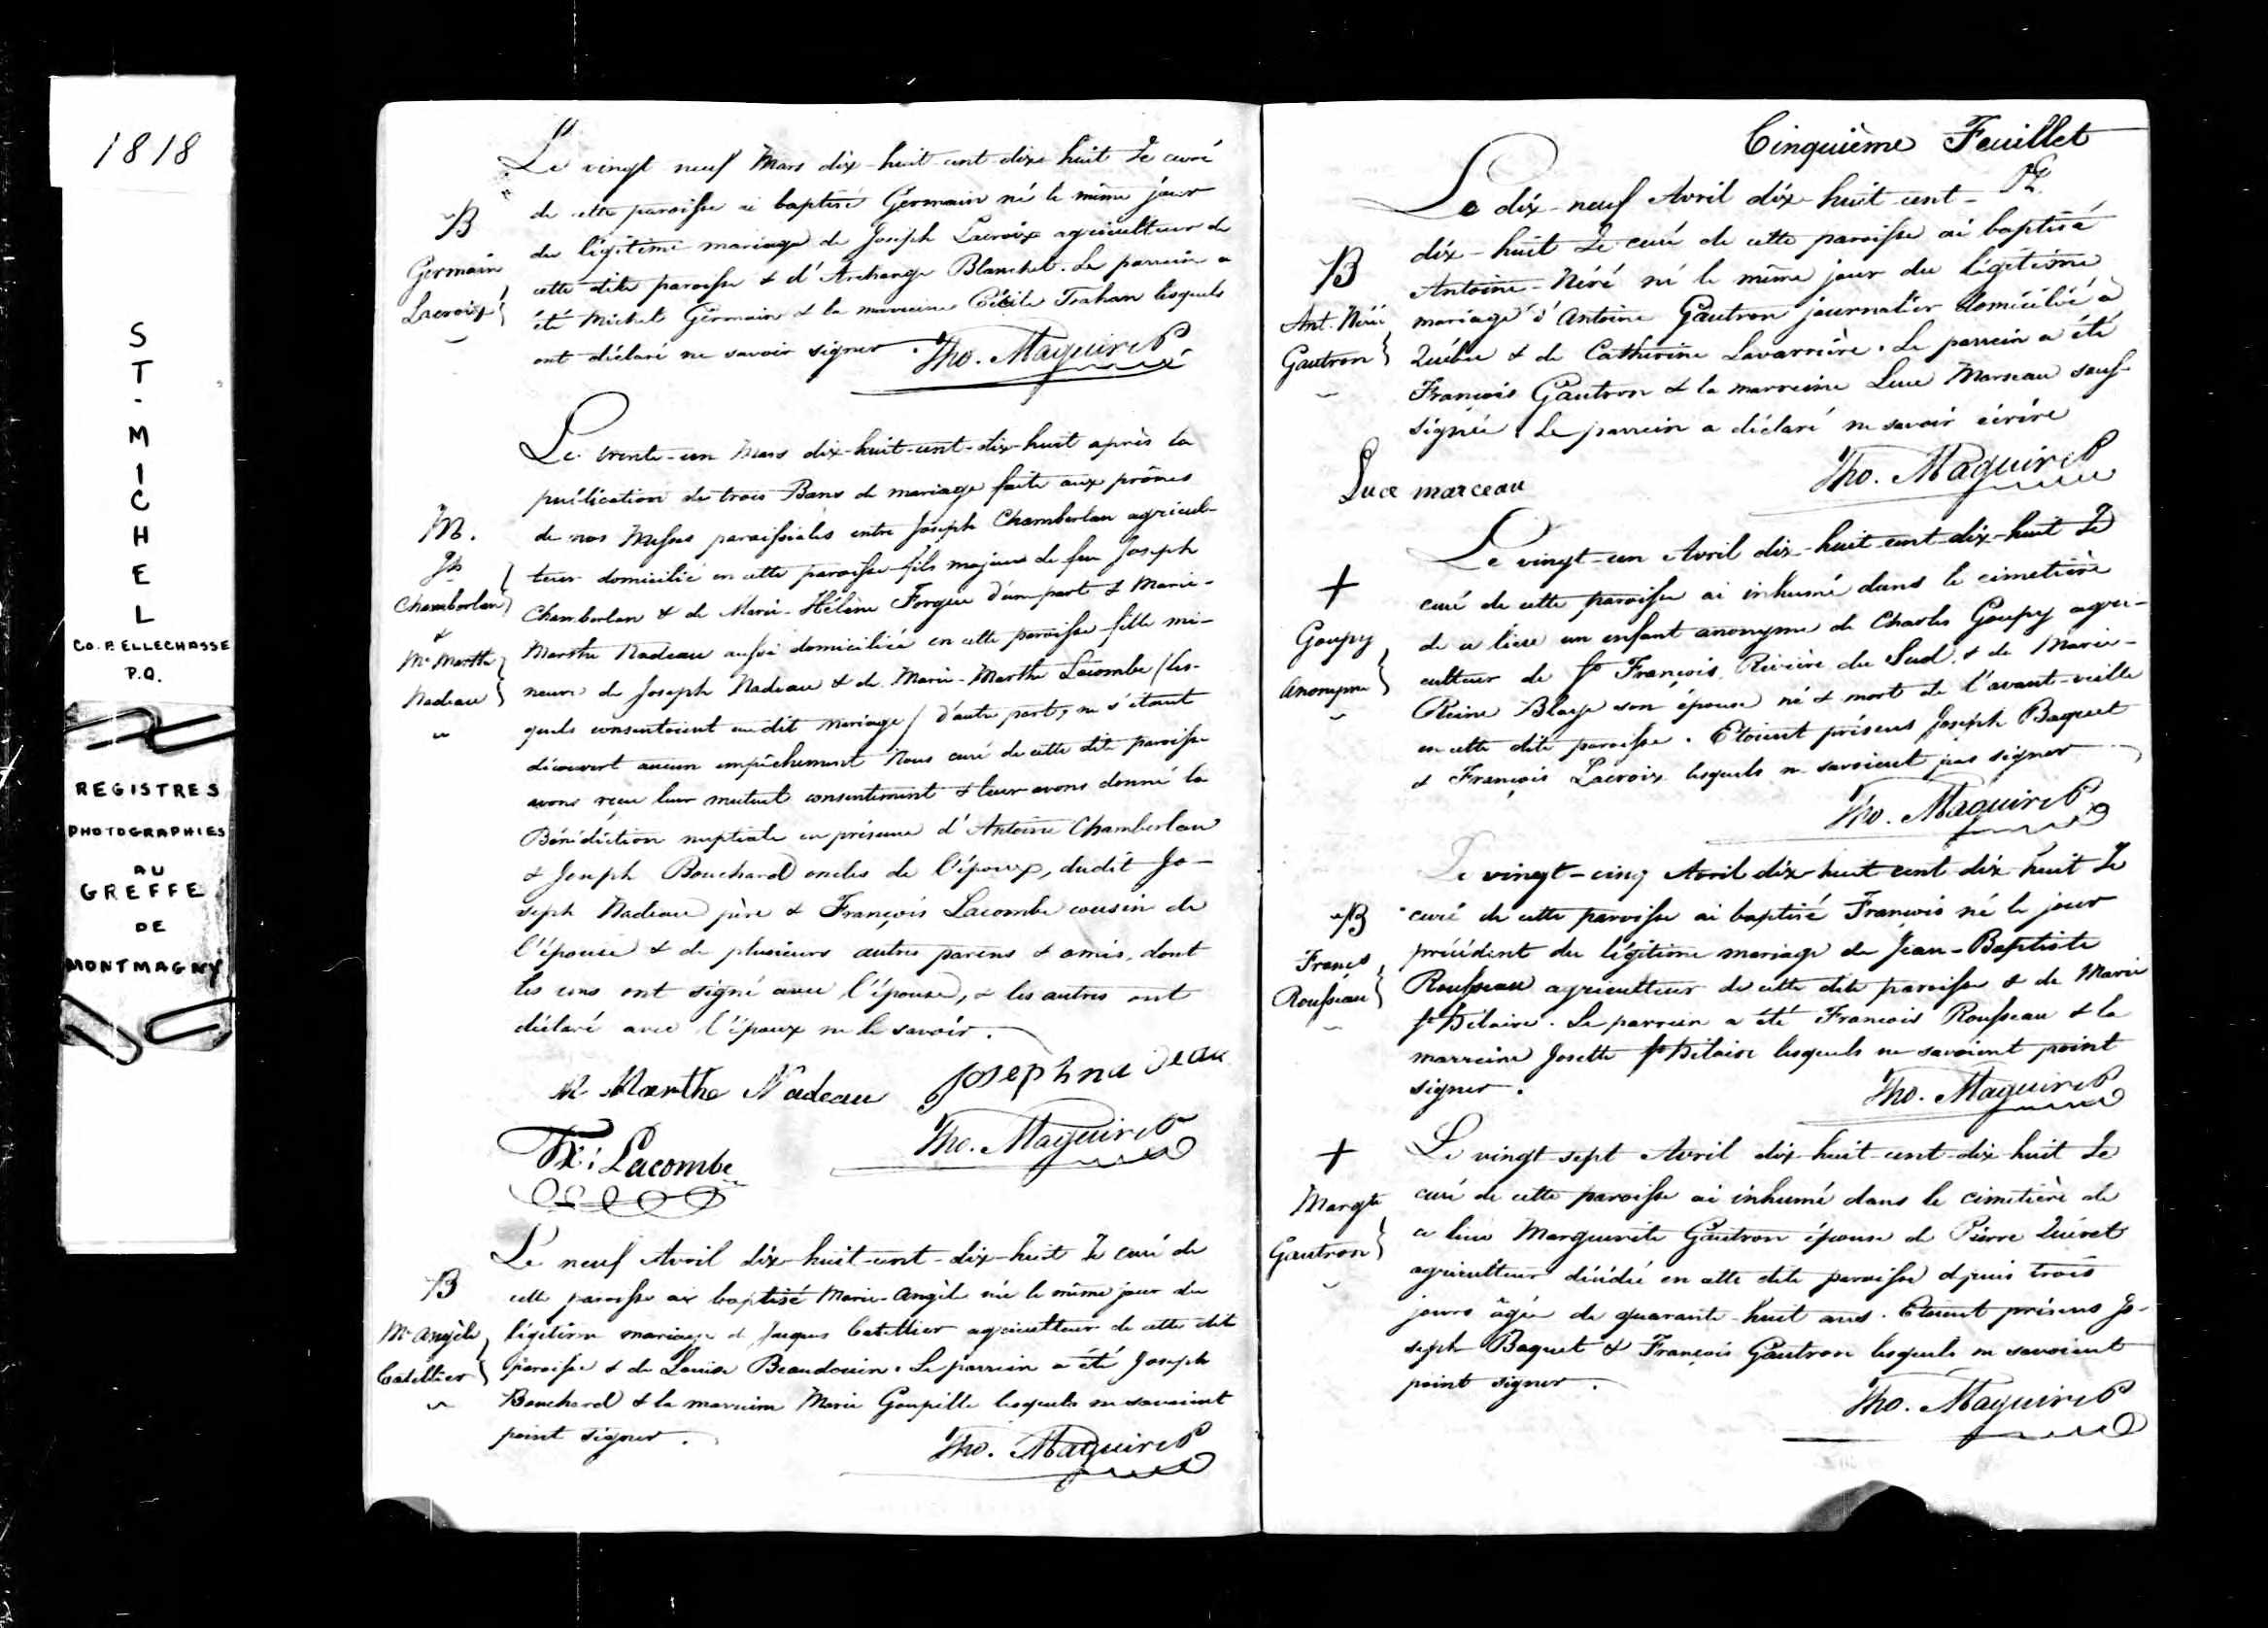 1818
ST. MICHEL
CO. BELLECHASSE
P.Q.
REGISTRES
PHOTOGRAPHIES
AU
GREFFE
DE
MONTMAGNY
B
Germain
Lacroix
Le vingt neuf Mars dix-huit-cent-dix-huit Je curé
de cette paroisse ai baptisé Germain né le même jour
du légitime mariage de Joseph Lacroix agriculteur de
cette dite paroisse & d'Archange Blanchet. Le parrain a
été Michel Germain & la marreine Cécile Trahan lesquels
ont déclaré ne savoir signer. Tho. Maguire P
M.
Jh
Chamberlan
&
Me Marthe
Nadeau
Le trente-un Mars dix-huit-cent-dix-huit après la
publication de trois Bans de mariage faite aux prônes
de nos Messes paroissiales entre Joseph Chamberlan agricul-
teur domicilié en cette paroisse fils majeur de feu Joseph
Chamberlan & de Marie-Hélène Forgue d'une part & Marie-
Marthe Nadeau aussi domiciliée en cette paroisse fille mi-
neure de Joseph Nadeau & de Marie-Marthe Lacombe (les-
quels consentoient au dit mariage) d'autre part, ne s'étant
découvert aucun empêchement Nous curé de cette dite paroisse
avons reçu leur mutuel consentement & leur avons donné la
Bénédiction nuptiale en présence d'Antoine Chamberlan
& Joseph Bouchard oncles de l'époux, dudit Jo-
seph Nadeau père & François Lacombe cousin de
l'épouse & de plusieurs autres parens & amis, dont
les uns ont signé avec l'épouse, & les autres ont
déclaré avec l'époux ne le savoir.
M Marthe Nadeau Joseph nadeau
Fx: Lacombe Tho. Maguire P
B
Me Angèle
Catellier
Le neuf Avril dix-huit-cent-dix-huit Je curé de
cette paroisse ai baptisé Marie-Angèle née le même jour du
légitime mariage de Jacques Catellier agriculteur de cette dite
paroisse & de Louise Beaudouin. Le parrein a été Joseph
Bouchard & la marreine Marie Goupille lesquels ne savoient
point signer. Tho. Maguire P
Cinquième Feuillet
B
Ant. Néré
Gautron
Le dix-neuf Avril dix-huit-cent-
dix-huit Je curé de cette paroisse ai baptisé
Antoine-Néré né le même jour du légitime
mariage d'Antoine Gautron journalier domicilié à
Québec & de Catherine Lavarrière. Le parrein a été
François Gautron & la marreine Luce Marseau sous-
signée. Le parrein a déclaré ne savoir écrire
Luce marceau Tho. Maguire P
+
Goupy
Anonyme
Le vingt-un Avril dix-huit-cent-dix-huit Je
curé de cette paroisse ai inhumé dans le cimetière
de ce lieu un enfant anonyme de Charles Goupy agri-
culteur de St François Rivière du Sud, & de Marie-
Reine Blais son épouse né & mort de l'avant-veille
en cette dite paroisse. Etoient présens Joseph Baquet
& François Lacroix lesquels ne savoient pas signer
Tho. Maguire P
B
Francs
Rousseau
Le vingt-cinq Avril dix-huit cent dix huit Je
curé de cette paroisse ai baptisé François né le jour
précédent du légitime mariage de Jean-Baptiste
Rousseau agriculteur de cette dite paroisse & de Marie
St Hilaire. Le parrein a été François Rousseau & la
marreine Josette St Hilaire lesquels ne savoient point
signer. Tho. Maguire P
+
Margte
Gautron
Le vingt-sept Avril dix-huit-cent-dix-huit Je
curé de cette paroisse ai inhumé dans le cimetière de
ce lieu Marguerite Gautron épouse de Pierre Quéret
agriculteur décédée en cette dite paroisse depuis trois
jours âgée de quarante-huit ans. Etoient présens Jo-
seph Baquet & François Gautron lesquels ne savoient
point signer.
Tho. Maguire P